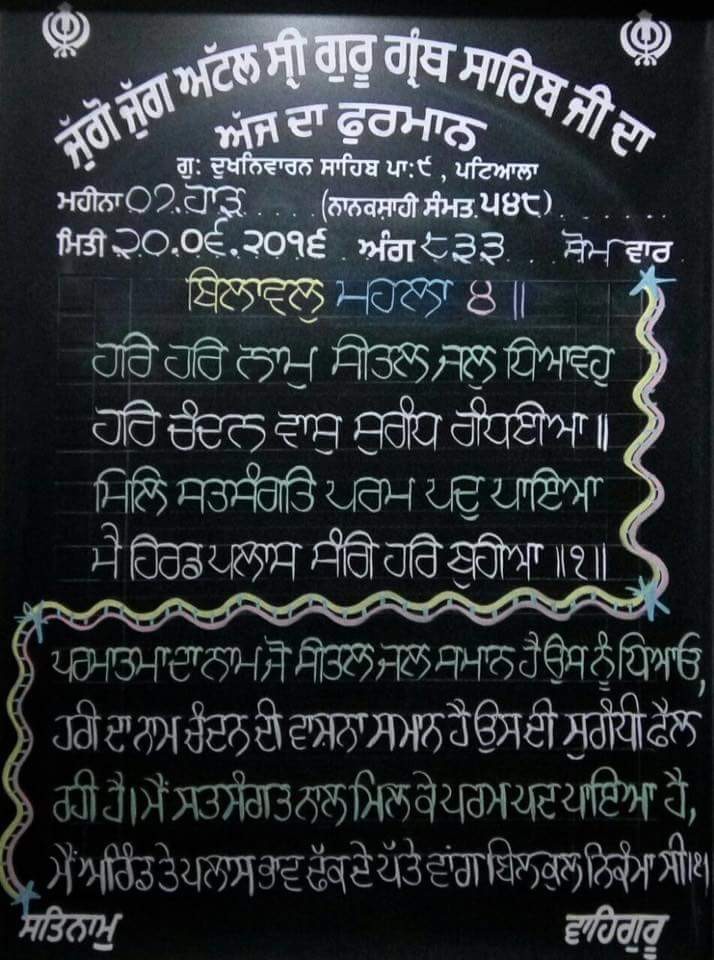 ਜੁੱਗੋ ਜੁੱਗ ਅਟੱਲ ਸ੍ਰੀ ਗੁਰੂ ਗ੍ਰੰਥ ਸਾਹਿਬ ਜੀ ਦਾ
ਅੱਜ ਦਾ ਫੁਰਮਾਨ
ਗੁ: ਦੁਖਨਿਵਾਰਨ ਸਾਹਿਬ ਪਾ:੯, ਪਟਿਆਲਾ
ਮਹੀਨਾ ੦੭.ਹਾੜ (ਨਾਨਕਸ਼ਾਹੀ ਸੰਮਤ.੫੪੮)
ਮਿਤੀ ੨੦.੦੬.੨੦੧੬ ਅੰਗ ੮੩੩ ਸੋਮ ਵਾਰ
ਬਿਲਾਵਲੁ ਮਹਲਾ ੪ ॥
ਹਰਿ ਹਰਿ ਨਾਮੁ ਸੀਤਲ ਜਲੁ ਧਿਆਵਹੁ
ਹਰਿ ਚੰਦਨ ਵਾਸੁ ਸੁਗੰਧ ਗੰਧਈਆ ॥
ਮਿਲਿ ਸਤਸੰਗਤਿ ਪਰਮ ਪਦੁ ਪਾਇਆ
ਮੈ ਹਿਰਡ ਪਲਾਸ ਸੰਗਿ ਹਰਿ ਬੁਹੀਆ ॥੧॥
ਪਰਮਾਤਮਾ ਦਾ ਨਾਮ ਜੋ ਸੀਤਲ ਜਲ ਸਮਾਨ ਹੈ ਉਸ ਨੂੰ ਧਿਆਓ,
ਹਰੀ ਦਾ ਨਾਮ ਚੰਦਨ ਦੀ ਵਾਸ਼ਨਾ ਸਮਾਨ ਹੈ ਉਸ ਦੀ ਸੁਗੰਧੀ ਫੈਲ
ਰਹੀ ਹੈ। ਮੈਂ ਸਤਸੰਗਤ ਨਾਲ ਮਿਲ ਕੇ ਪਰਮ ਪਦ ਪਾਇਆ ਹੈ,
ਮੈਂ ਅਰਿੰਡ ਤੇ ਪਲਾਸ ਭਾਵ ਢੱਕ ਦੇ ਪੱਤੇ ਵਾਂਗ ਬਿਲਕੁਲ ਨਿਕੰਮਾ ਸੀ॥੧
ਸਤਿਨਾਮੁ ਵਾਹਿਗੁਰੂ